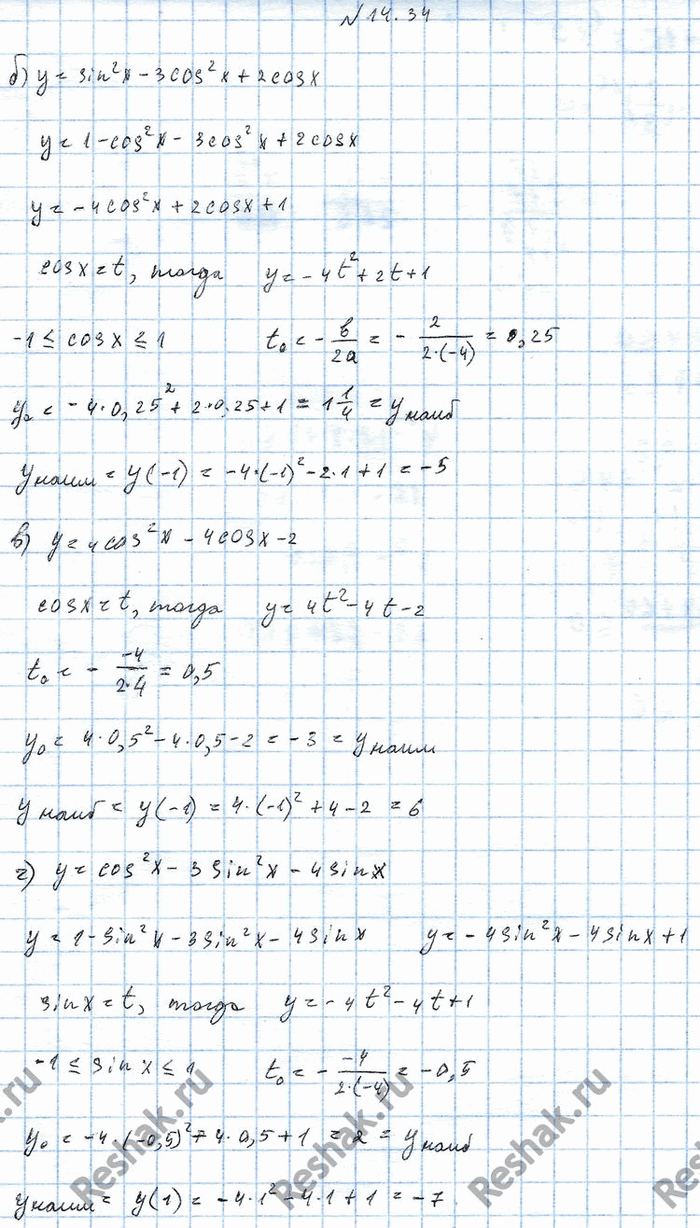 №14.34
б) y = sin²x - 3cos²x + 2cosx
y = 1 - cos²x - 3cos²x + 2cosx
y = -4cos²x + 2cosx + 1
cosx = t, тогда y = -4t² + 2t + 1
-1 ≤ cosx ≤ 1 t₀ = - в/2a = - 2/(2·(-4)) = 0,25
y₀ = -4·0,25² + 2·0,25 + 1 = 1 1/4 = yнаиб
yнаим = y(-1) = -4·(-1)² - 2·1 + 1 = -5
в) y = 4cos²x - 4cosx - 2
cosx = t, тогда y = 4t² - 4t - 2
t₀ = - -4/(2·4) = 0,5
y₀ = 4·0,5² - 4·0,5 - 2 = -3 = yнаим
yнаиб = y(-1) = 4·(-1)² + 4 - 2 = 6
г) y = cos²x - 3sin²x - 4sinx
y = 1 - sin²x - 3sin²x - 4sinx y = -4sin²x - 4sinx + 1
sinx = t, тогда y = -4t² - 4t + 1
-1 ≤ sinx ≤ 1 t₀ = - -4/(2·(-4)) = -0,5
y₀ = -4·(-0,5)² + 4·0,5 + 1 = 2 = yнаиб
yнаим = y(1) = -4·1² - 4·1 + 1 = -7
Reshak.ru
Reshak.ru
Reshak.ru